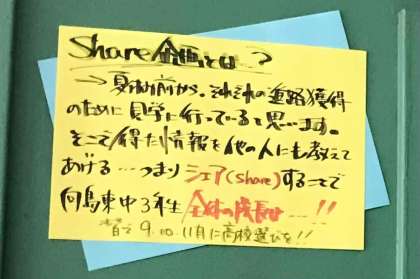 Share企画とは…?
→夏休み前から、それぞれの進路獲得
のために見学に行っていると思います。
そこで得た情報を他の人にも教えて
あげる…つまりシェア(share)することで
向島東中3年生 全体の成長は…!!
9.10.11月に高校選びを!!